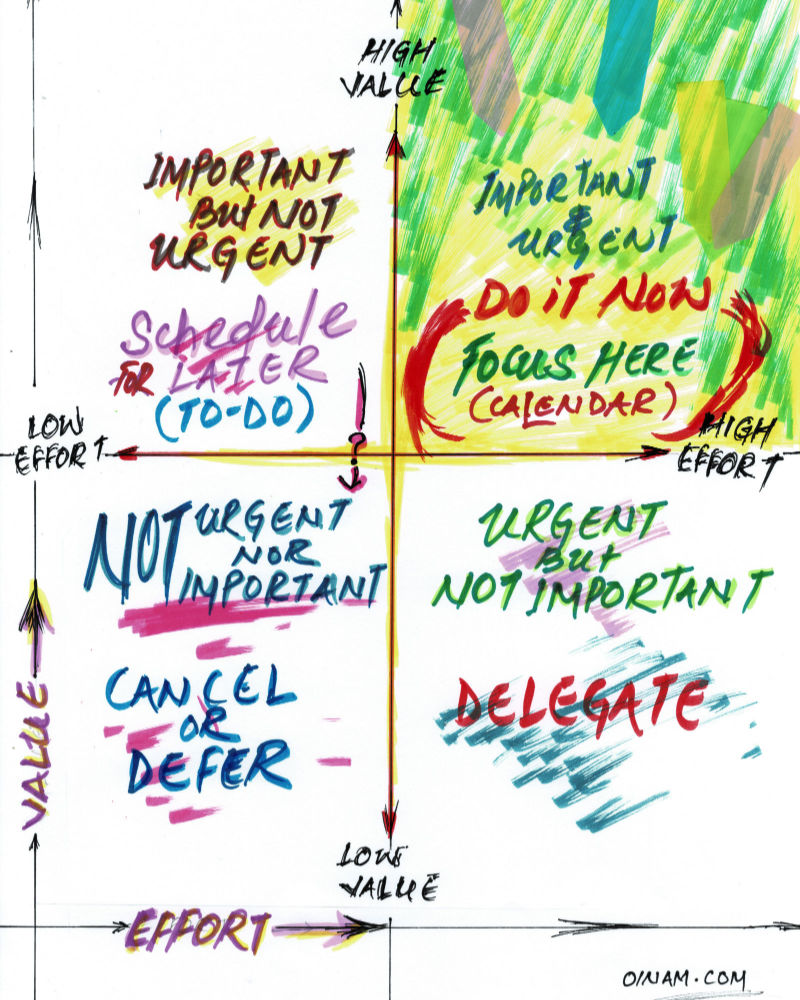 HIGH
VALUE
IMPORTANT
BUt NOT
URGENT
Schedule
FOR LATER
(TO-DO)
IMPORTANT
&
URGENT
DO iT NOW
FOCUS HERE
(CALENDAR)
LOW
EFFORT
HIGH
EFFORT
?
NOT URGENT
NOR
IMPORTANT
CANCEL
OR
DEFER
URGENT
BUt
NOT IMPORTANT
DELEGATE
VALUE
LOW
VALUE
EFFORT
OINAM.COM